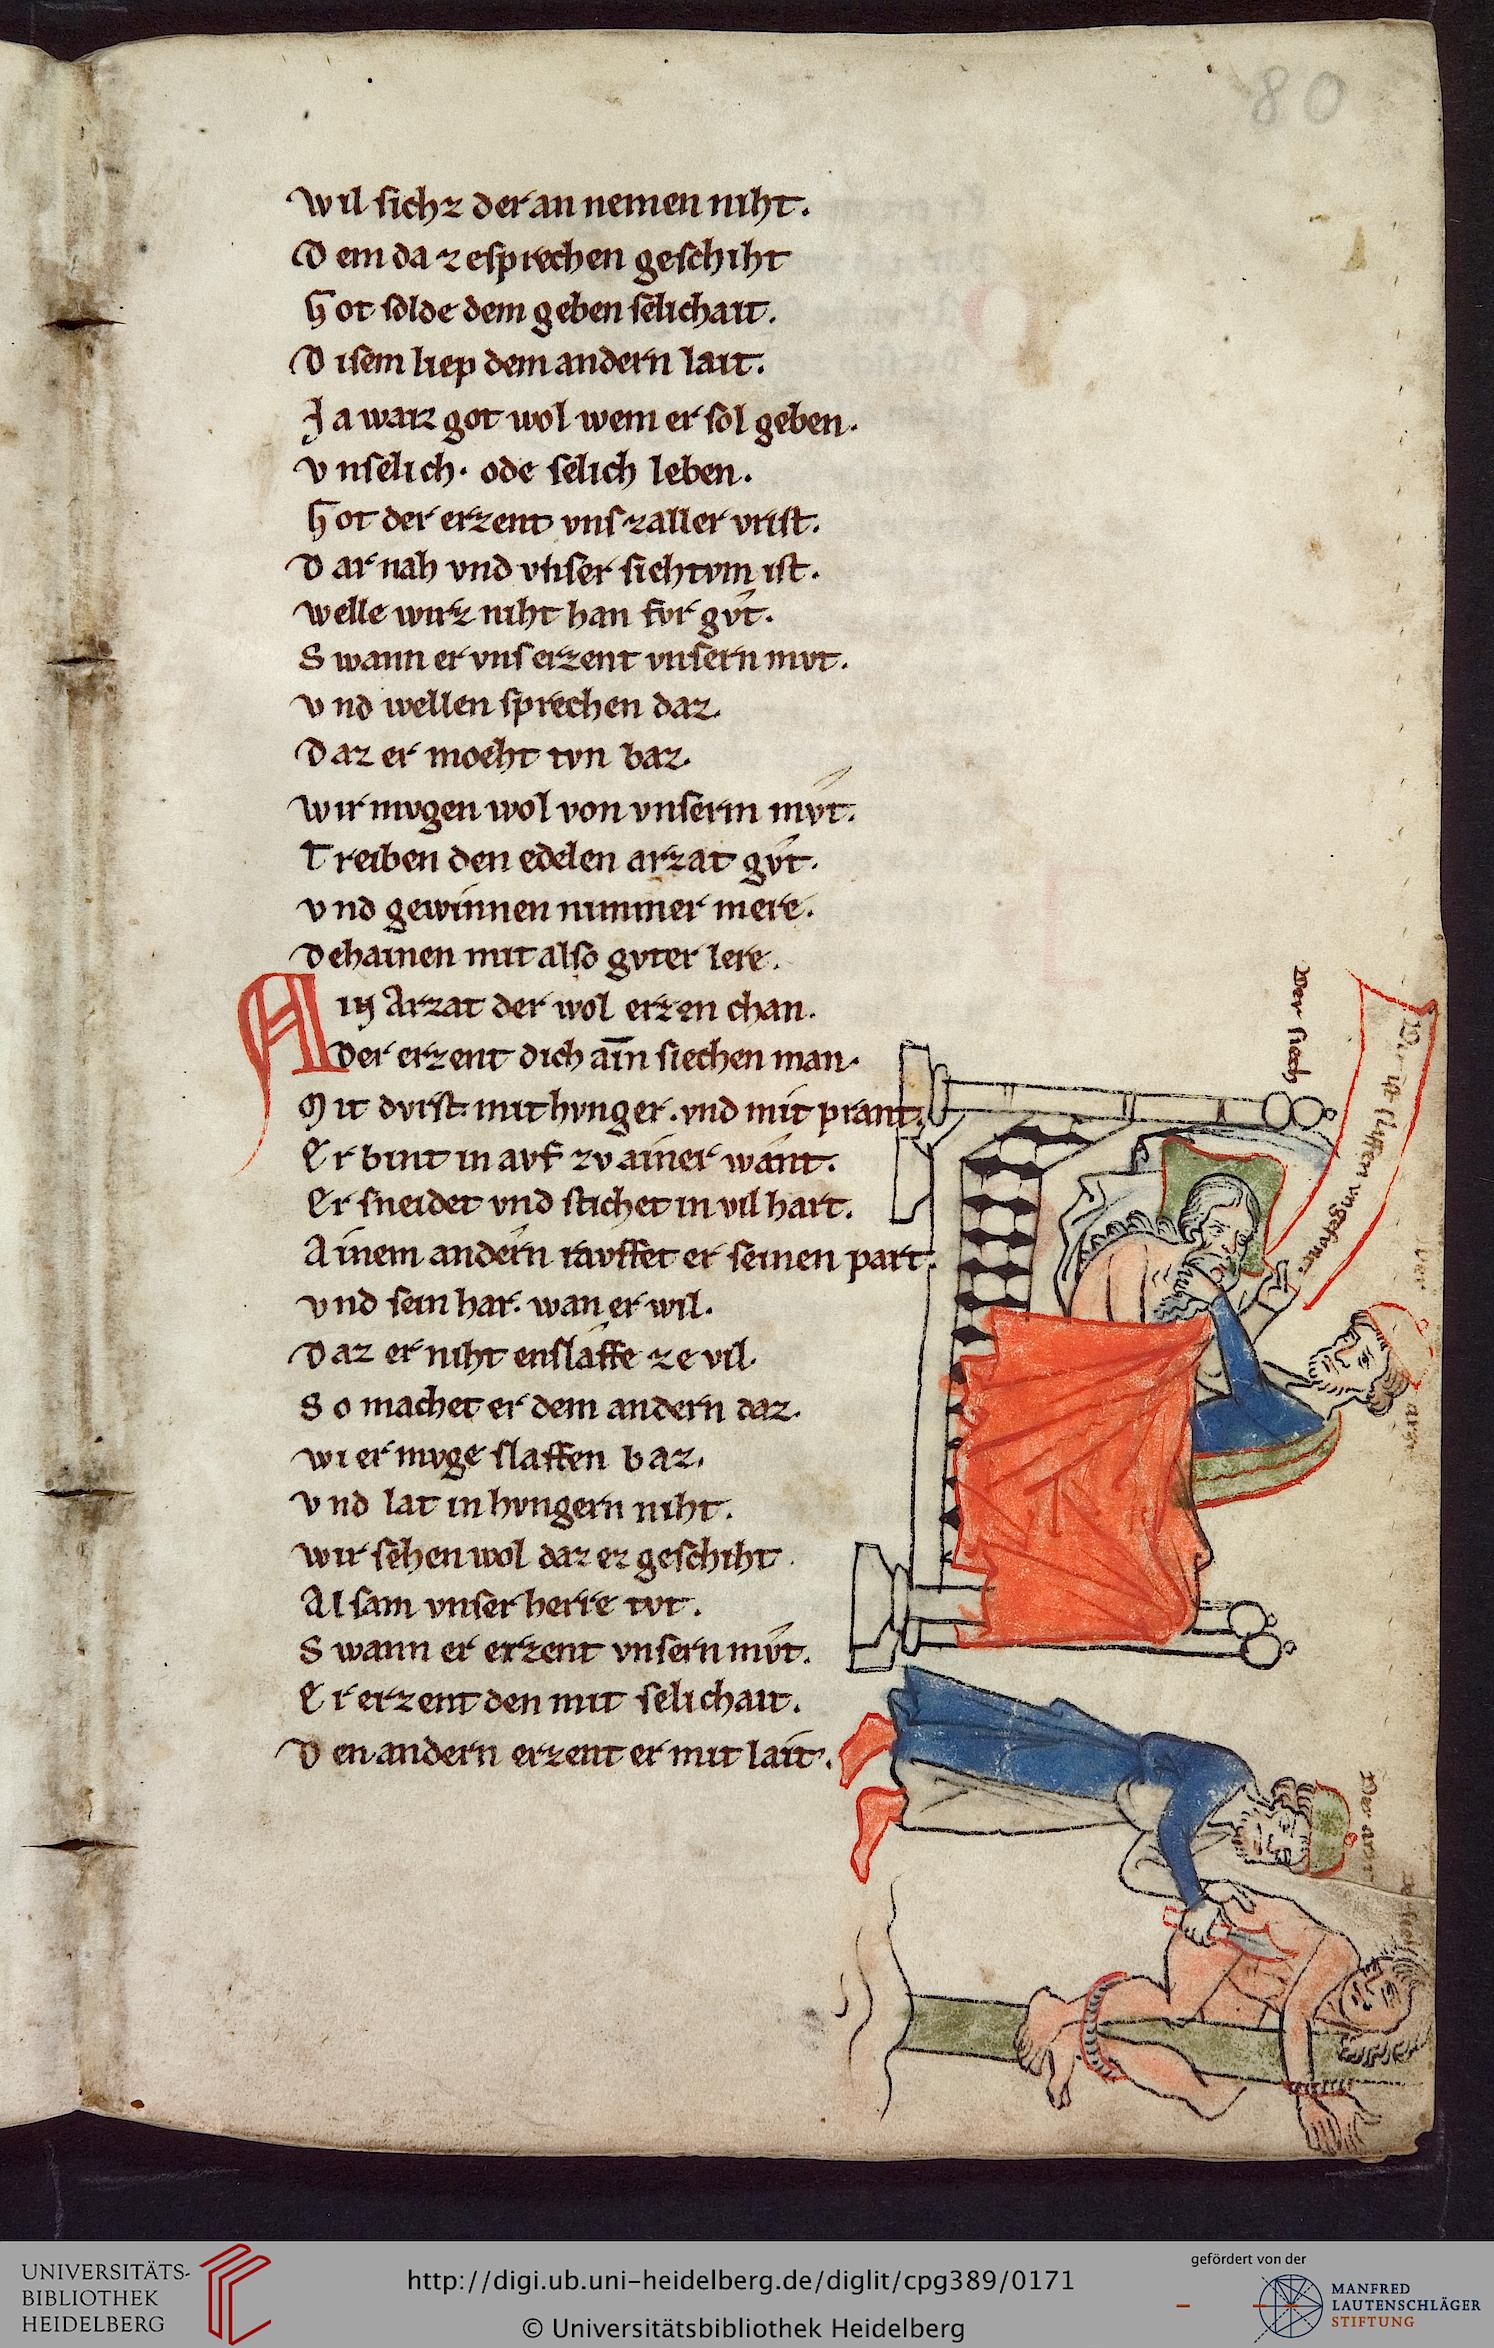 80
Wil sichz der an nemen niht.
Dem da zesprechen geschiht
Got solde dem geben selichait.
Disem liep dem andern lait.
Ja waiz got wol wem er sol geben.
Vnselich. ode selich leben.
Got der erzent vns zaller vrist.
Dar nah vnd vnser siechtvm ist.
Welle wirz niht han fvr gvͦt.
Swann er vns erzent vnsern mvt.
Vnd wellen sprechen daz.
Daz er moeht tvn baz.
Wir mvgen wol von vnserm mvͦt.
Treiben den edelen arzat gvͦt.
Vnd gewinnen nimmer mere.
Dehainen mit also gvter lere.
Ain Arzat der wol erzen chan.
Der erzent dich aīn siechen man.
Mit dvrst. mit hvnger. vnd mit prant.
Er bint in avf zv ainer want.
Er sneidet vnd stichet in vil hart.
Ainem andern ravffet er seinen part.
Vnd sein har. wan er wil.
Daz er niht enslaffe ze vil.
So machet er dem andern daz.
Wi er mvge slaffen baz.
Vnd lat in hvngern niht.
Wir sehen wol daz ez geschiht.
Alsam vnser herre tvt.
Swann er erzent vnsern mvͦt.
Er erzent den mit selichait.
Den andern erzent er mit lait.
Der siech
Dir ist slaffen vngesvnt.
Der arzt
Der arzt
UNIVERSITÄTS-
BIBLIOTHEK
HEIDELBERG
http://digi.ub.uni-heidelberg.de/diglit/cpg389/0171
© Universitätsbibliothek Heidelberg
gefördert von der
MANFRED
LAUTENSCHLÄGER
STIFTUNG